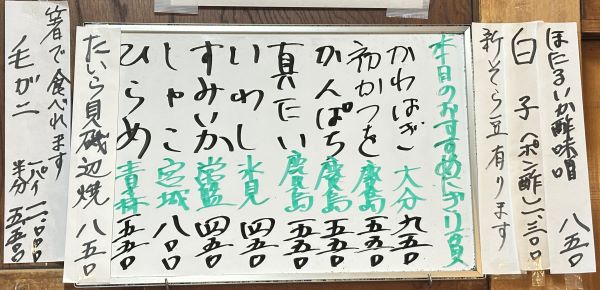 ほたるいか酢味噌 八五〇
白子(ポン酢)一、三〇〇
新そら豆有ります
本日のおすすめにぎり 1貫
かわはぎ 大分 九五〇
初かつを 鹿島 五五〇
かんぱち 鹿島 五五〇
真だい 鹿島 五五〇
いわし 氷見 四五〇
すみいか 常盤 四五〇
しゃこ 宮城 八〇〇
ひらめ 青森 五五〇
たいら貝磯辺焼 八五〇
箸で食べれます
毛ガニ 一パイ 一一、〇〇〇
半分 五、五〇〇